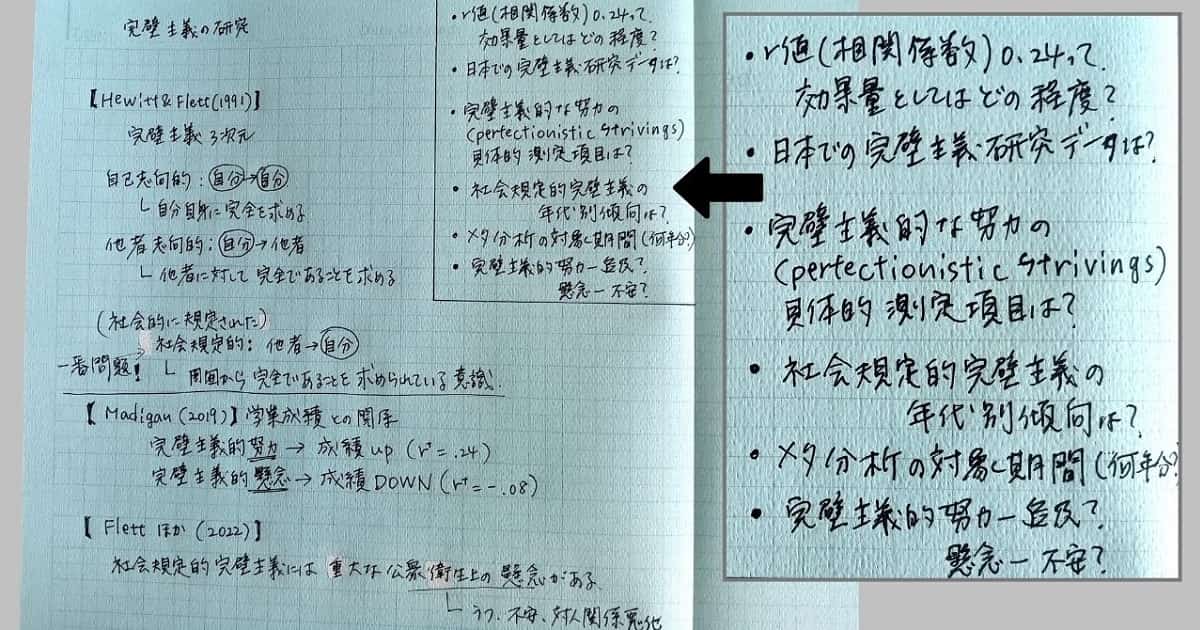 完璧主義の研究
【Hewitt & Flett(1991)】
完璧主義3次元
自己志向的：自分→自分
└ 自分自身に完全を求める
他者志向的：自分→他者
└ 他者に対して完全であることを求める
(社会的に規定された)
社会規定的：他者→自分
一番問題！
└ 周囲から完全であることを求められている意識.
【Madigan(2019)】学業成績との関係
完璧主義的努力→成績up (r⁺=.24)
完璧主義的懸念→成績DOWN (r⁺=-.08)
【Flettほか(2022)】
社会規定的完璧主義には重大な公衆衛生上の懸念がある
└ うつ、不安、対人関係悪化
・r値(相関係数)0.24って.
効果量としてはどの程度?
・日本での完璧主義研究データは?
・完璧主義的な努力の
(perfectionistic strivings)
具体的測定項目は?
・社会規定的完璧主義の
年代別傾向は?
・メタ分析の対象期間(何年分?)
・完璧主義的努力ー
懸念ー不安?
・r値(相関係数)0.24って.
効果量としてはどの程度?
・日本での完璧主義研究データは?
・完璧主義的な努力の
(perfectionistic strivings)
具体的測定項目は?
・社会規定的完璧主義の
年代別傾向は?
・メタ分析の対象期間(何年分?
・完璧主義的努力ー
懸念ー不安?